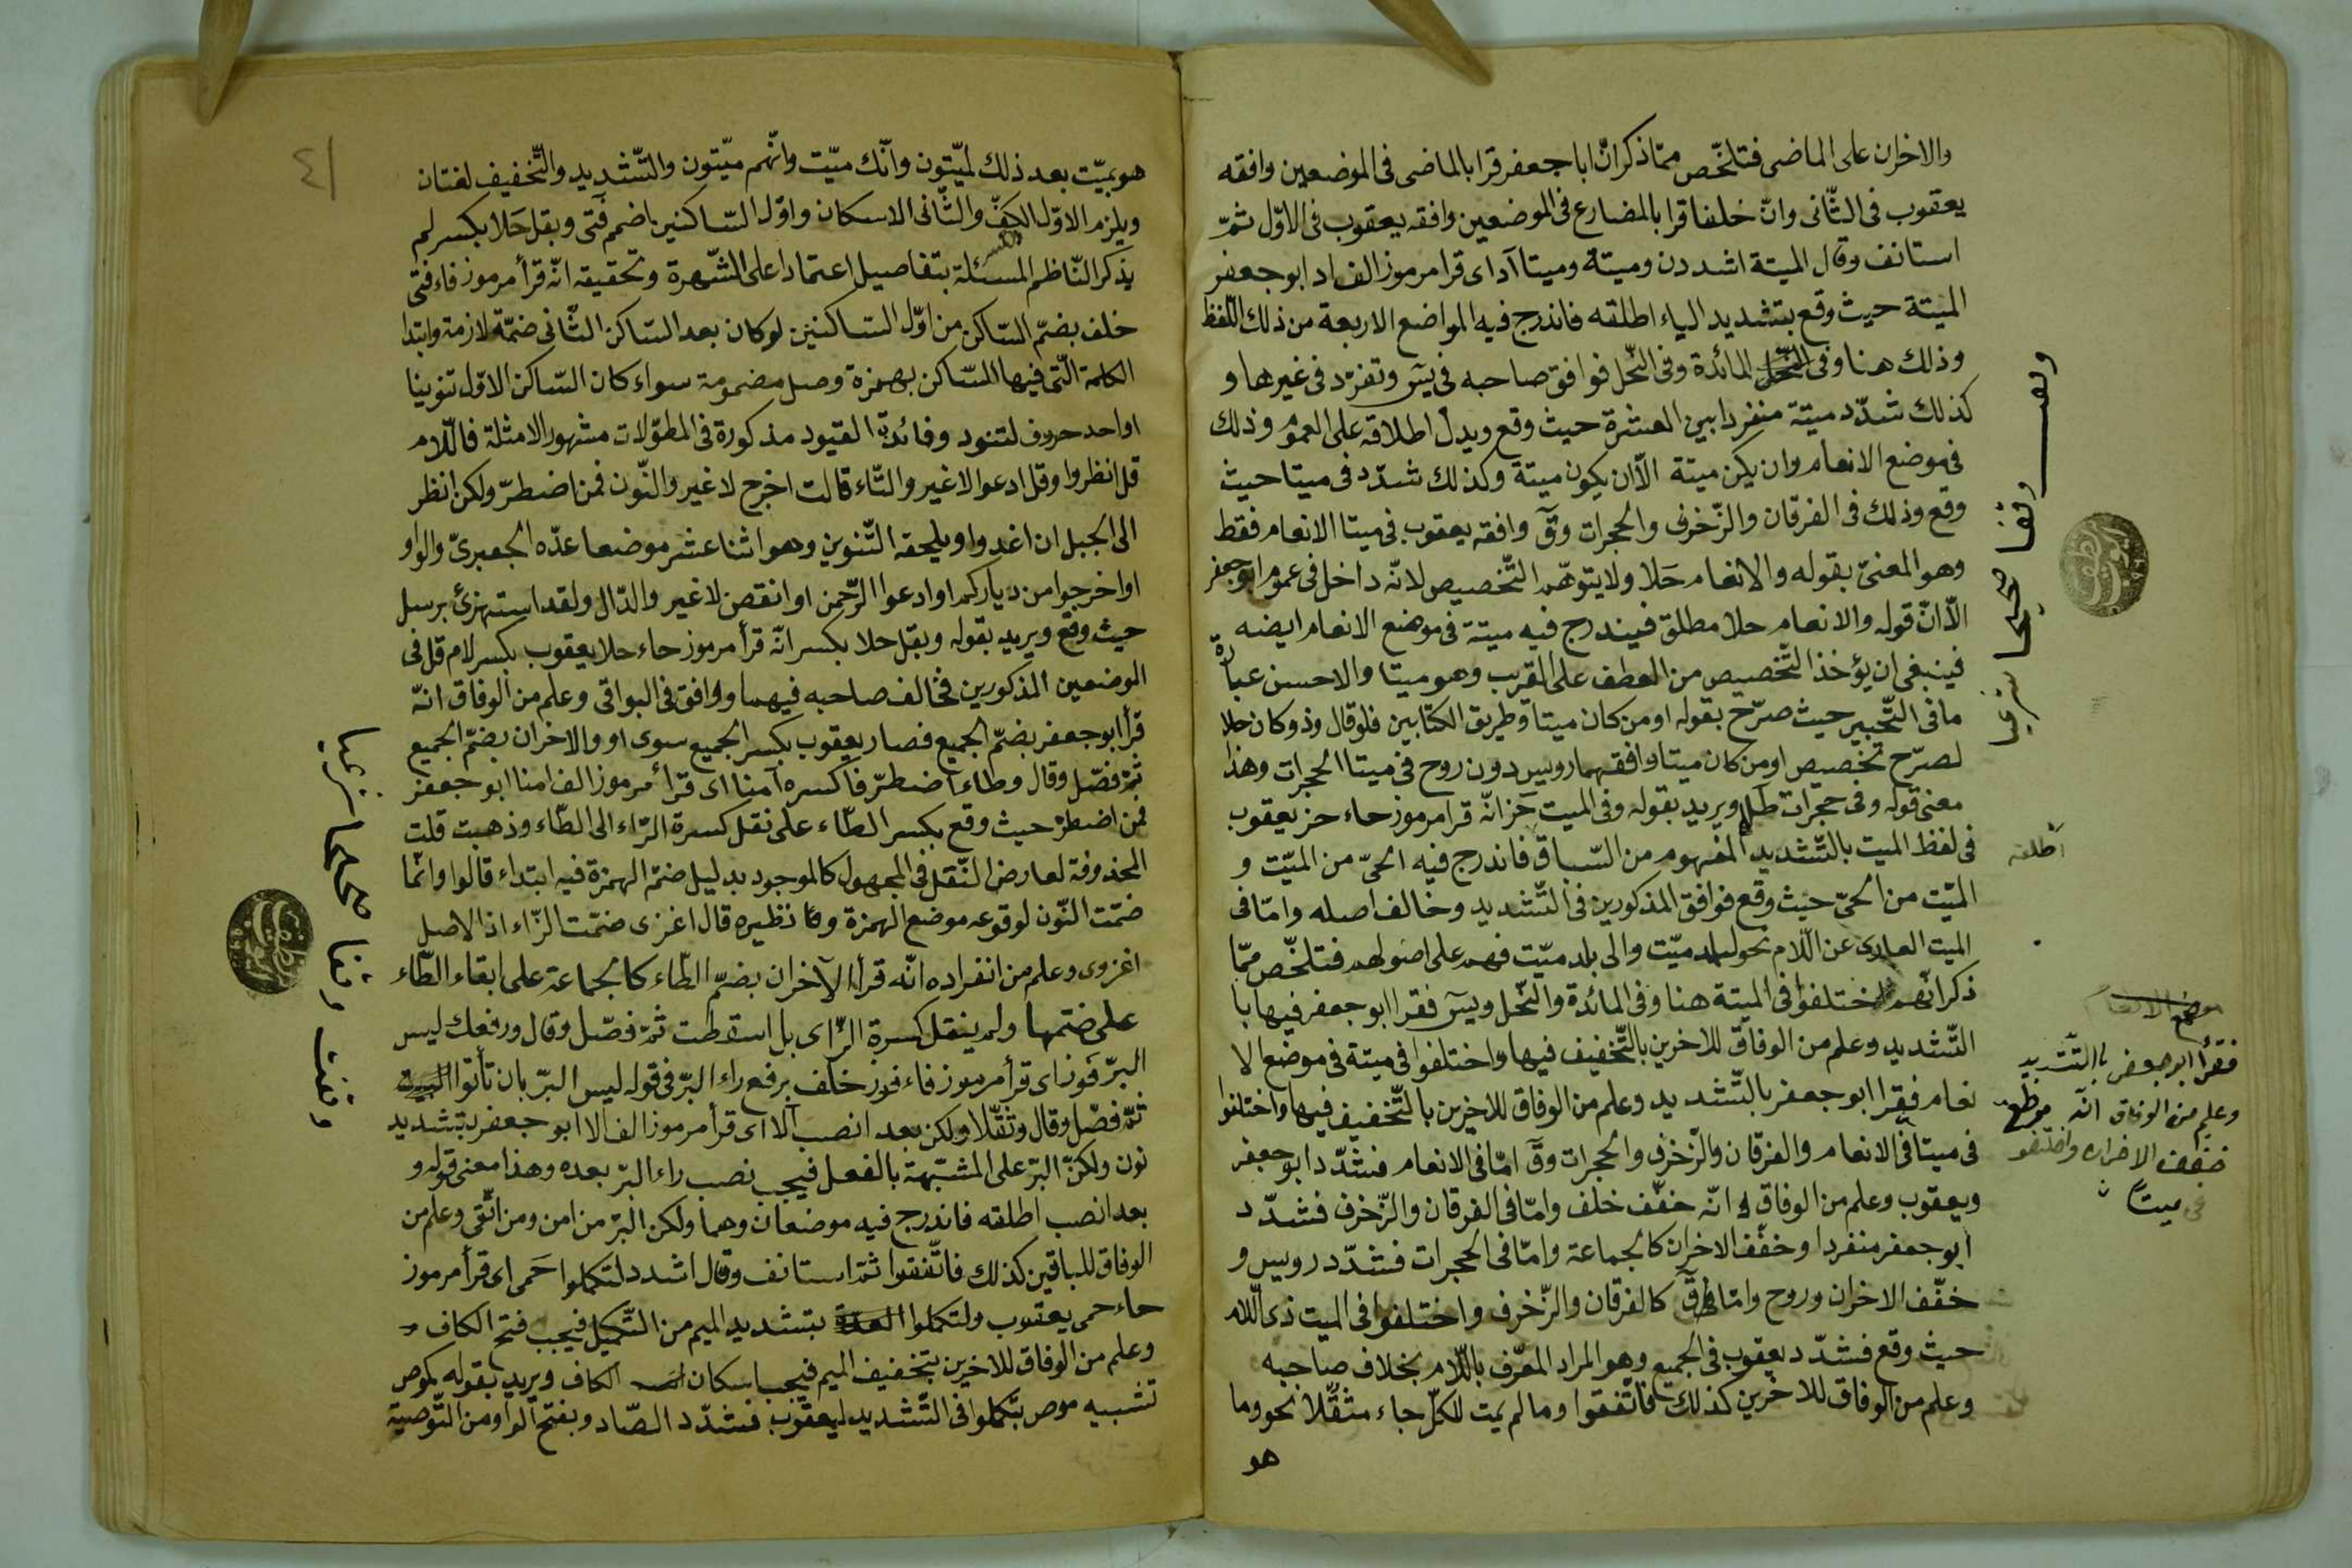 والاخران على الماضى فتلخّص ممّا ذكر انّ ابا جعفر قرا بالماضى فى الموضعين وافقه
يعقوب فى الثّانى وانّ خلفا قرا بالمضارع فى الموضعين وافقه يعقوب فى الاوّل ثمّ
استانف وقال الميتة اشددن وميتة وميتا آد اى قرا مرموز الف اد ابو جعفر
الميتة حيث وقع بتشديد الياء اطلقه فاندرج فيه المواضع الاربعة من ذلك اللّفظ
وذلك هنا وفى المائدة وفى النّحل فوافق صاحبه فى يس وتفرّد فى غيرها و
كذلك شدّد ميتة منفردا بين العشرة حيث وقع ويدل اطلاقه على العموم وذلك
فى موضع الانعام وان يكن ميتة الّا ان يكون ميتة وكذلك شدّد فى ميتا حيث
وقع وذلك فى الفرقان والزّخرف والحجرات وقٓ وافقه يعقوب فى ميتا الانعام فقط
وهو المعنىّ بقوله والانعام حَلا ولا يتوهّم التّخصيص لانّه داخل فى عموم ابو جعفر
الّا انّ قوله والانعام حلا مطلق فيندرج فيه ميتة فى موضع الانعام ايضه
فينبغى ان يؤخذ التّخصيص من العطف على القرب وهو ميتا والاحسن عبارة
ما فى التّحبير حيث صرّح بقوله او من كان ميتا وطريق الكتابين فلو قال وذو كان حلا
لصرّح تخصيص او من كان ميتا وافقهما رويس دون روح فى ميتا الحجرات وهذا
معنى قوله وفى حجرات طل ويريد بقوله وفى الميت حز انّه قرا مرموز حاء حز يعقوب
فى لفظ الميت بالتّشديد المفهوم من السّباق فاندرج فيه الحىّ من الميّت و
اطلقه
الميّت من الحىّ حيث وقع فوافق المذكورين فى التّشديد وخالف اصله وامّا فى
الميت العارى عن اللّام نحو لبلد ميّت والى بلد ميّت فهم على اصولهم فتلخّص ممّا
ذكر انّهم اختلفوا فى الميتة هنا وفى المائدة والنّحل ويسٓ فقرا ابو جعفر فيها با
التّشديد وعلم من الوفاق للاخرين بالتّخفيف فيها واختلفوا فى ميتة فى موضع الا
نعام فقرا ابو جعفر بالتّشديد وعلم من الوفاق للاخرين بالتّخفيف فيها واختلفوا
فى ميتا فى الانعام والفرقان والزّخرف والحجرات وقٓ امّا فى الانعام فشدّد ابو جعفر
ويعقوب وعلم من الوفاق انّه خفّف خلف وامّا فى الفرقان والزّخرف فشدّد
ابو جعفر منفردا وخفّف الاخران كالجماعة وامّا فى الحجرات فشدّد رويس و
خفّف الاخران وروح وامّا فى قٓ كالفرقان والزّخرف واختلفوا فى الميت ذى اللّام
حيث وقع فشدّد يعقوب فى الجميع وهو المراد المعرّف باللّام بخلاف صاحبه
وعلم من الوفاق للاخرين كذلك فاتّفقوا وما لم يمت للكلّ جاء مثقّلا نحو وما
هو
موضع الانعام
فقرأ ابو جعفر بالتّشديد
وعلم من الوفاق انّه
خفّف الاخران واختلفو
فى ميتًا
هو بميّت بعد ذلك لميّتون وانّك ميّت وانّهم ميّتون والتّشديد والتّخفيف لغتان
ويلزم الاوّل الكسر والثّانى الاسكان واوّل السّاكنين اضمم فتى وبقل حَلا بكسر لم
يذكر النّاظم المسئلة بتفاصيل اعتمادا على الشّهرة وتحقيقه انّه قرأ مرموز فاء فتى
خلف بضمّ السّاكن من اوّل السّاكنين لو كان بعد السّاكن الثّانى ضمّة لازمة وابتدا
الكلمة الّتى فيها السّاكن بهمزة وصل مضمومة سواء كان السّاكن الاوّل تنوينا
او احد حروف لتنود وفائدة القيود مذكورة فى المطوّلات مشهور الامثلة فاللّام
قل انظروا وقل ادعوا لا غير والتّاء قالت اخرج لا غير والنّون فمن اضطرّ ولكن انظر
الى الجبل ان اغدوا ويلحقه التّنوين وهو اثنا عشر موضعا عدّه الجعبرىّ والواو
او اخرجوا من دياركم او ادعوا الرّحمن او انقص لا غير والدّال ولقد استهزئ برسل
حيث وقع ويريد بقوله وبقل حلا بكسر انّه قرأ مرموز حاء حلا يعقوب بكسر لام قل فى
الموضعين المذكورين فخالف صاحبه فيهما ووافق فى البواقى وعلم من الوفاق انّه
قرأ ابو جعفر بضمّ الجميع فصار يعقوب بكسر الجميع سوى او والاخران بضمّ الجميع
ثمّ فصّل وقال وطاء اضطرّ فاكسره آمنا اى قرأ مرموز الف امنا ابو جعفر
فمن اضطرّ حيث وقع بكسر الطّاء على نقل كسرة الرّاء الى الطّاء وذهبت قلت
المحذوفة لعارض النّقل فى المجهول كالموجود بدليل ضمّ الهمزة فيه ابتداء قالوا وانّما
ضمّت النّون لوقوعه موضع الهمزة وفا نظيره قال اغزى ضمّت الزّاء اذ الاصل
اغزوى وعلم من انفراده انّه قرأ الآخران بضمّ الطّاء كالجماعة على ابقاء الطّاء
على ضمّها ولم ينقل كسرة الرّاى بل اسقطت ثمّ فصّل وقال ورفعك ليس
البرّ فوز اى قرأ مرموز فاء فوز خلف برفع راء البرّ فى قوله ليس البرّ بان تأتوا
ثمّ فصّل وقال وثقّلا ولكن بعد انصب آلا اى قرأ مرموز الف الا ابو جعفر بتشديد
نون ولكنّ البرّ على المشبّهة بالفعل فيجب نصب راء البرّ بعده وهذا معنى قوله و
بعد انصب اطلقه فاندرج فيه موضعان وهما ولكن البرّ من امن ومن اتّقى وعلم من
الوفاق للباقين كذلك فاتّفقوا ثمّ استانف وقال اشدد لتكملوا حَمى اى قرأ مرموز
حاء حمى يعقوب ولتكملوا العدّة بتشديد الميم من التّكميل فيجب فتح الكاف
وعلم من الوفاق للاخرين بتخفيف الميم فيجب اسكان الكاف ويريد بقوله كموص
تشبيه موص بتكملوا فى التّشديد ليعقوب فشدّد الصّاد وبفتح الواو من التّوصية
٤١